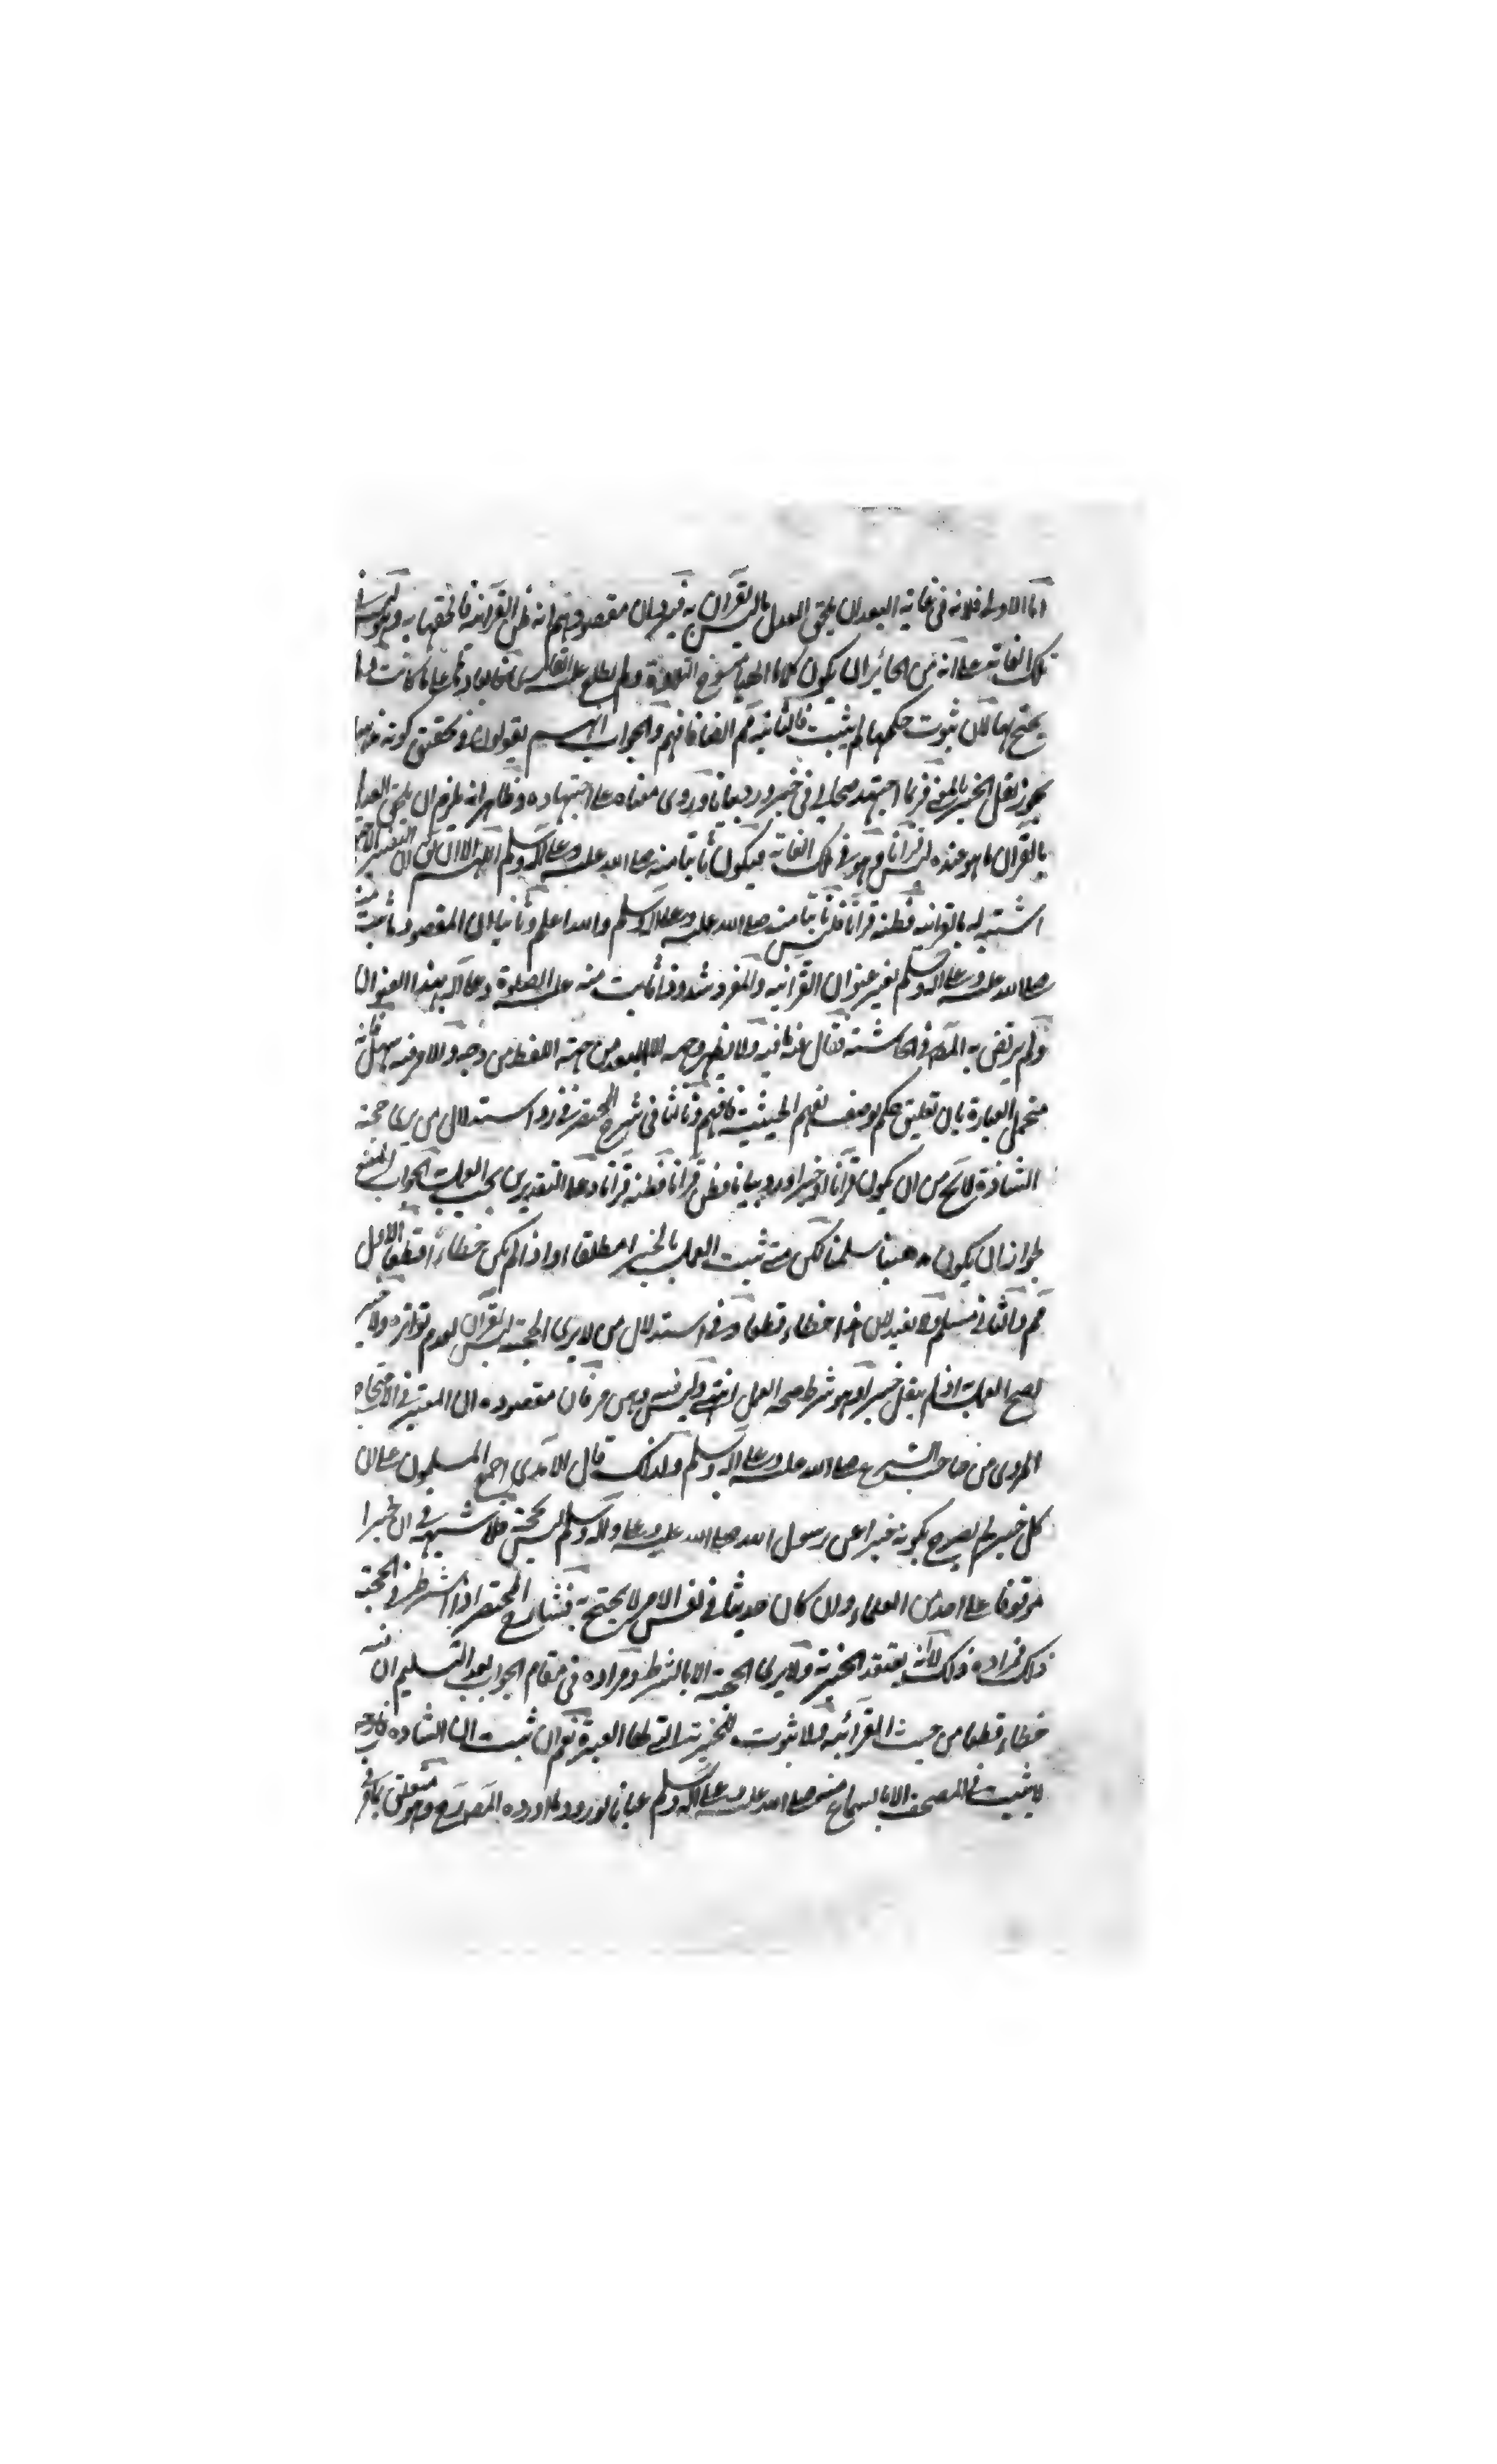 اما الاولى فلانه في غاية البعد ان يلحق العدل بالقرآن ما ليس به فيه وان مقصودهم انه ظن القرآنية فالحقها به وهو ليس في
تلك الغاية على انه من الجائز ان يكون كلاما الهيا منسوخ التلاوة ولم يطلع عليه القارى
يحتج بها لان ثبوت حكمها لم يثبت فالثانية مم ايضا فافهم والجواب انهم يقولون في تحقيق كونه
يجوز نقل الخبر بالمعنى فربما اجتهد صحابي في خبر ورد بيانا وروى معناه على اجتهاده وظاهر انه يلزم ان يلحق العدل
بالقرآن ما هو عنده ليس قرآنا وهو في تلك الغاية فيكون ثابتا منه صلى الله عليه وعلى آله وسلم اللهم الا ان
اشتبه له بالقرآنية فظنه قرآنا فليس ثابتا منه صلى الله عليه وعلى آله وسلم والله اعلم وثانيا ان المقصود ما ثبت منه
صلى الله عليه وعلى آله وسلم بغير عنوان القرآنية والمفروض شذوذ ما ثبت منه عليه الصلوة وعلى آله بهذا العنوان
ولم يرتض به المص في الحاشية فقال فيه ما فيه ولا يظهر وجهه الا البعد من جهة اللفظ من وجه والامر فيه سهل فانه
متحمل العبارة بان تعليق حكم بوصف يفهم الحيثية فافهم وثالثا في شرح المختصر في رد استدلال من يرى حجية
الشاذة لا يخ من ان يكون قرآنا او خبرا ورد بيانا فظن قرآنا فظنه قرآنا وعلى التقديرين يجب العمل به الجواب المنع
لجواز ان يكون مذهبا سلمنا لكن متى ثبت العمل بالخبر مطلقا او اذا لم يكن خطاء قطعا الاول
مم والثاني مسلم ولا يفيد لان هذا خطاء قطعا وفي استدلال من لا يرى الحجية ليس بقرآن لعدم تواتره ولا خبر
يصح العمل به اذ لم ينقل خبرا وهو شرط صحة العمل انتهى وليس فيه وهن فان مقصوده ان المعتبر في الاحتجاج
المروي من صاحب الشرع صلى الله عليه وعلى آله وسلم ولذلك قال الآمدي اجمع المسلمون على ان
كل خبر لم يصرح بكونه خبرا عن رسول الله صلى الله عليه وعلى آله وسلم ليس بحجة فلا شبهة في ان خبرا
موقوفا على احد من العلماء وان كان حديثا في نفس الامر لا يحتج به فشارح المختصر اذا اشترط في الحجية
ذلك فمراده ذلك لانه يعتقد الخبرية ولا يرى الحجية الا بالشرط ومراده في مقام الجواب بعد التسليم انه
خطاء قطعا من حيث القرآنية ولا ثبوت للخبرية نعم ان ثبت ان الشاذة
لا يثبت في المصحف الا بالسماع منه صلى الله عليه وعلى آله وسلم عيانا لورود ما اورده المص وهو متعلق